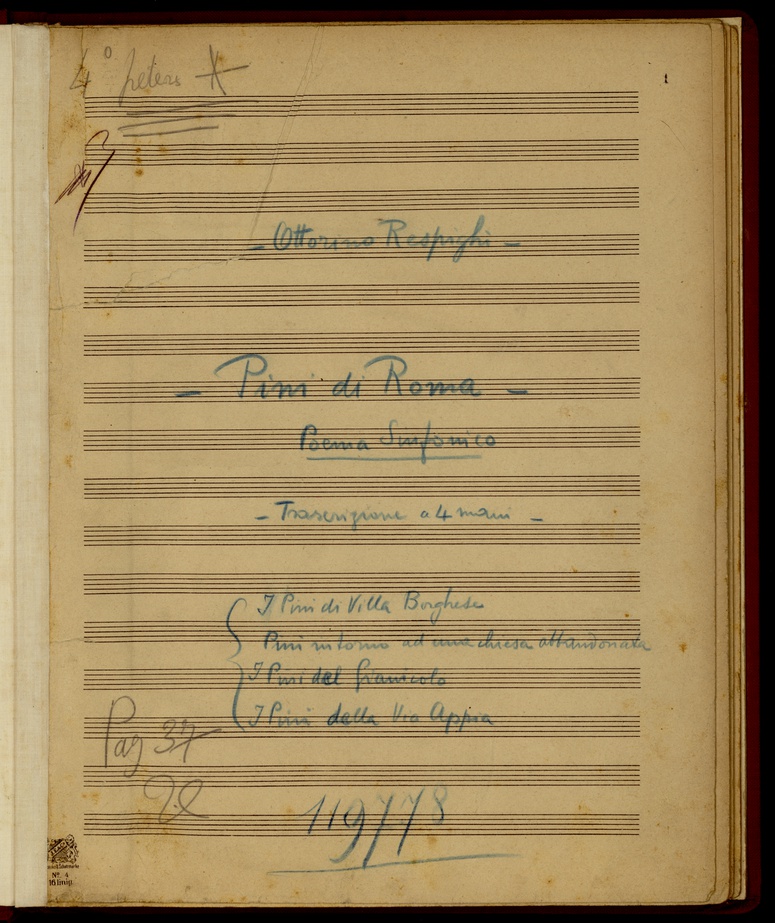 4° peters
1
– Ottorino Respighi –
– Pini di Roma –
Poema Sinfonico
– Trascrizione a 4 mani –
I Pini di Villa Borghese
Pini intorno ad una chiesa abbandonata
I Pini del Gianicolo
I Pini della Via Appia
Pag 37
119778
No. 4
16 linig.